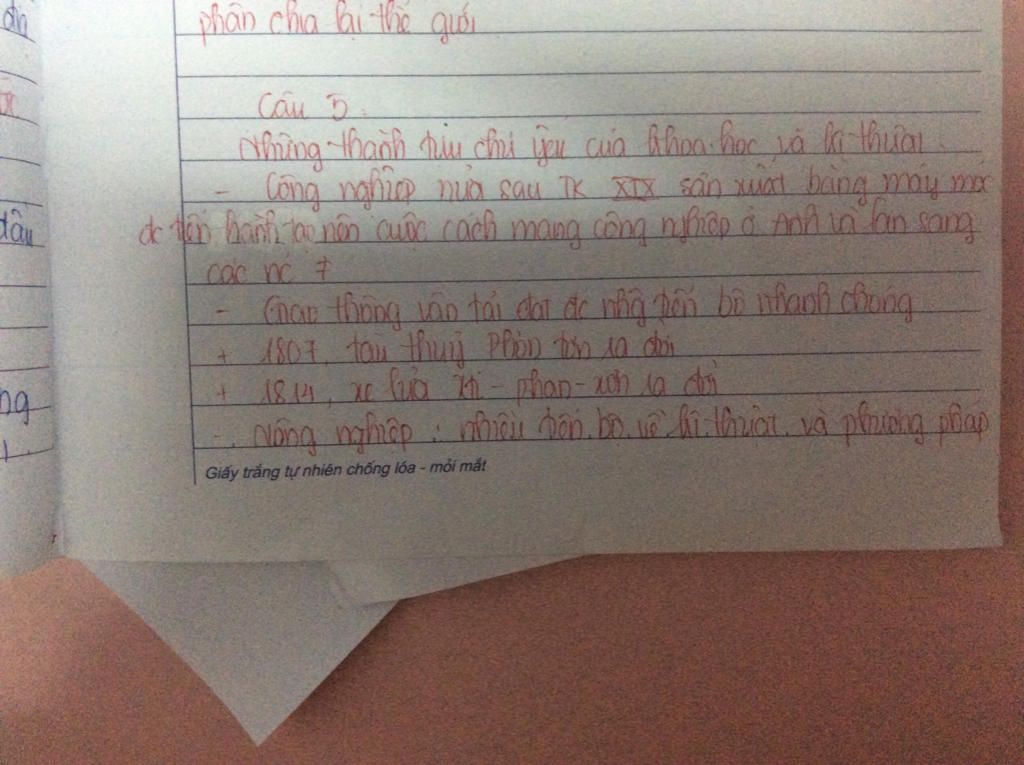 phân chia lại thế giới
Câu 5:
Những thành tựu chủ yếu của khoa học và kĩ thuật
- Công nghiệp nửa sau TK XIX sản xuất bằng máy móc
đc tiến hành tạo nên cuộc cách mạng công nghiệp ở Anh và lan sang
các nc ≠
- Giao thông vận tải đạt đc nhữg tiến bộ nhanh chóng
+ 1807, tàu thuỷ Phơn tơn ra đời
+ 1814, xe lửa Xti - phan - xơn ra đời
- Nông nghiệp : nhiều tiến bộ về kĩ thuật và phương pháp
Giấy trắng tự nhiên chống lóa - mỏi mắt
đầu
ng